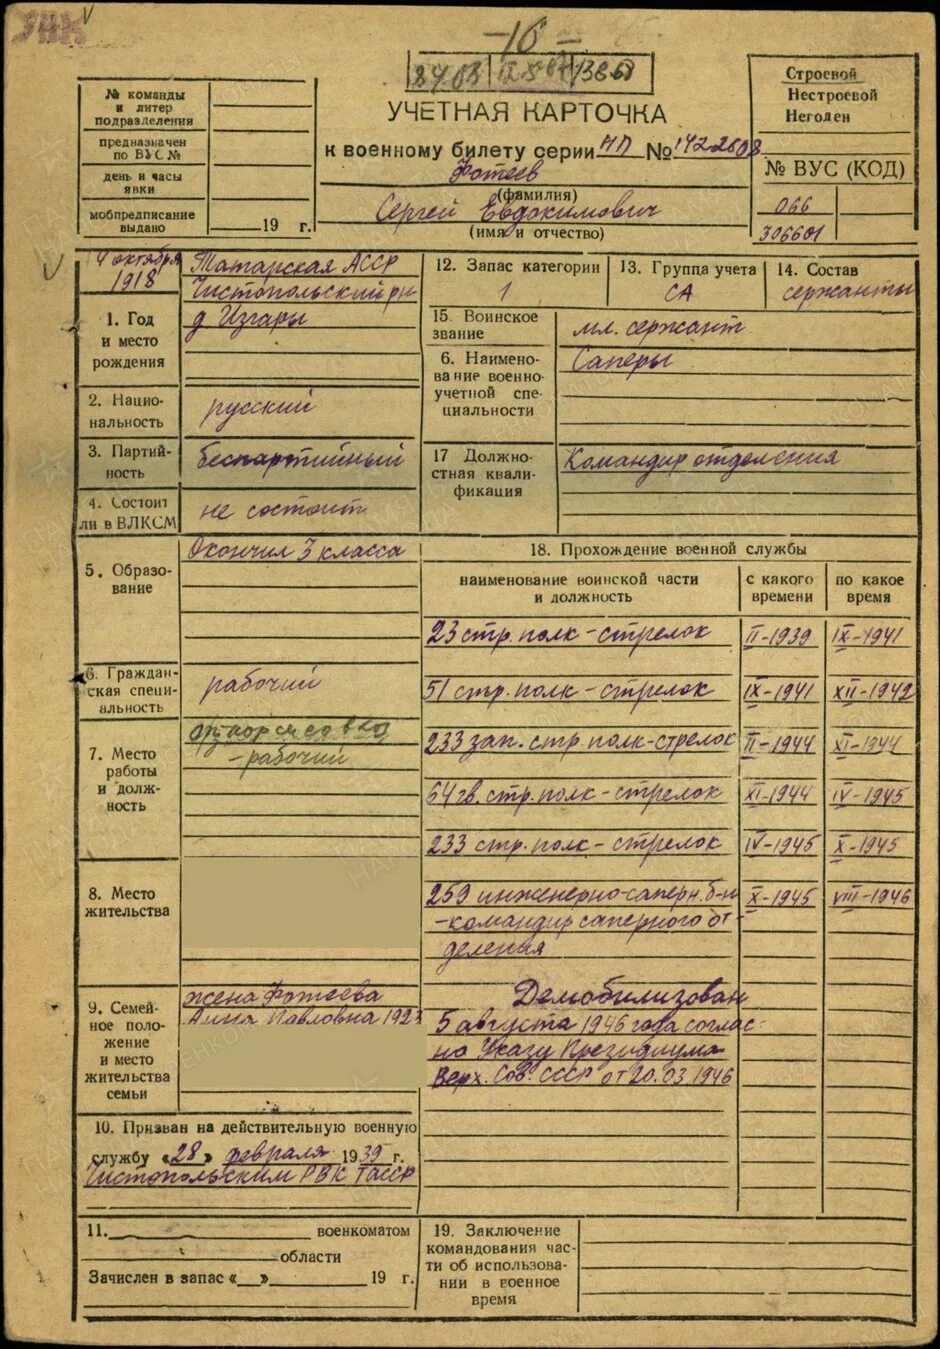 УЧЕТНАЯ КАРТОЧКА
к военному билету серии НП № 1422608
Фотеев
(фамилия)
Сергей Евдокимович
(имя и отчество)
№ команды
и литер
подразделения
предназначен
по ВУС №
день и часы
явки
мобпредписание
выдано
19 г.
Строевой
Нестроевой
Негоден
№ ВУС (КОД)
066
306601
4 октября
1918
1. Год
и место
рождения
Татарская АССР
Чистопольский р-н
д Изгары
2. Нацио-
нальность
русский
3. Партий-
ность
беспартийный
4. Состоит
ли в ВЛКСМ
не состоит
5. Образо-
вание
Окончил 3 класса
6. Граждан-
ская специ-
альность
рабочий
7. Место
работы
и долж-
ность
- рабочий
8. Место
жительства
9. Семей-
ное поло-
жение
и место
жительства
семьи
жена Фотеева
Анна Павловна 1923
10. Призван на действительную военную
службу «28» февраля 1939 г.
Чистопольским РВК ТАССР
11. военкоматом
области
Зачислен в запас « » 19 г.
12. Запас категории
1
13. Группа учета
СА
14. Состав
сержанты
15. Воинское
звание
мл. сержант
6. Наимено-
вание военно-
учетной спе-
циальности
Саперы
17 Долж­но-
стная квали-
фикация
Командир отделения
18. Прохождение военной службы
наименование воинской части
и должность
с какого
времени
по какое
время
23 стр. полк - стрелок II-1939 IX-1941
51 стр. полк - стрелок IX-1941 XII-1942
233 зап. стр. полк - стрелок II-1944 XI-1944
64 гв. стр. полк - стрелок XI-1944 IV-1945
233 стр. полк - стрелок IV-1945 X-1945
259 инженерно-саперн. б-н X-1945 VIII-1946
- командир саперного от-
деления
Демобилизован
5 августа 1946 года соглас-
но Указу Президиума
Верх. Сов. СССР от 20.03.1946
19. Заключение
командования час-
ти об использова-
нии в военное
время